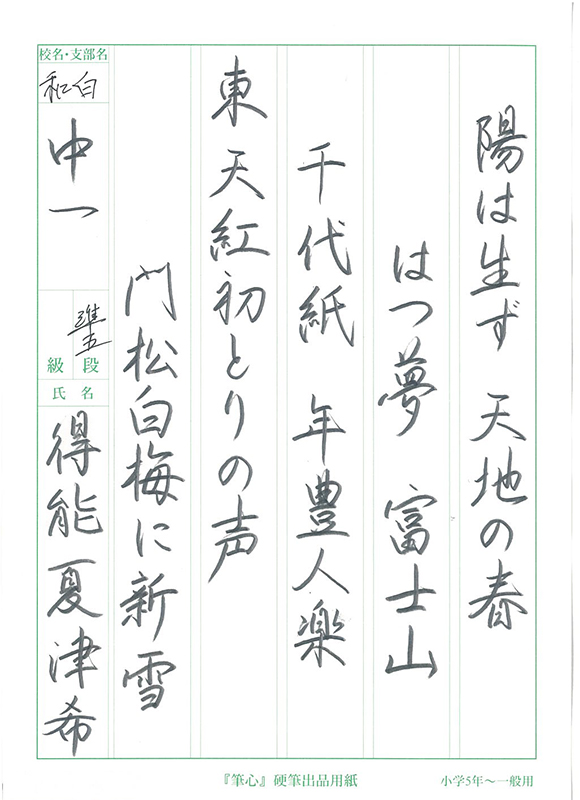 陽は生ず 天地の春
はつ夢 富士山
千代紙 年豊人楽
東天紅初とりの声
門松白梅に新雪
校名・支部名
和白
中一
準五
級 段
氏名
得能夏津希
『筆心』硬筆出品用紙
小学5年〜一般用